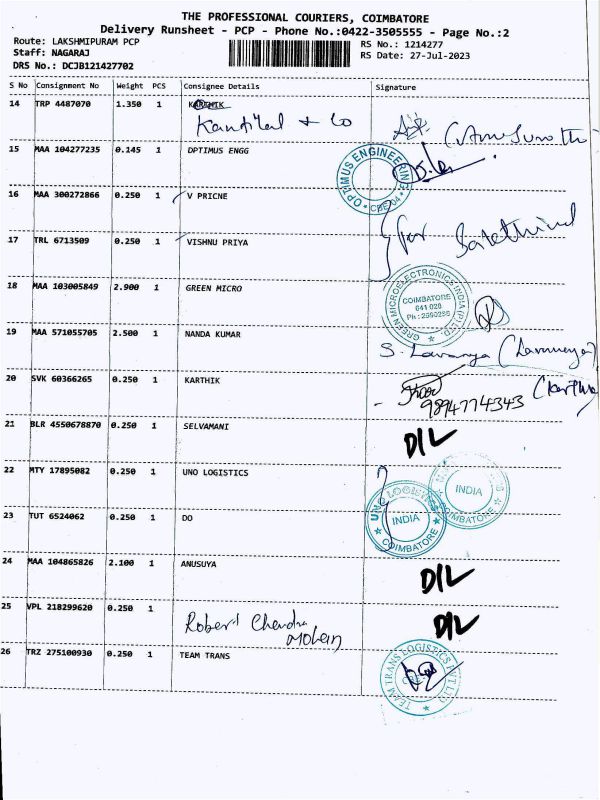 THE PROFESSIONAL COURIERS, COIMBATORE
Delivery Runsheet - PCP - Phone No.:0422-3505555 - Page No.:2
Route: LAKSHMIPURAM PCP
Staff: NAGARAJ
DRS No.: DCJB121427702
RS No.: 1214277
RS Date: 27-Jul-2023
S No Consignment No Weight PCS Consignee Details Signature
14 TRP 4487070 1.350 1 KARTHIK
Kantilal & Co
15 MAA 104277235 0.145 1 OPTIMUS ENGG
OPTIMUS ENGINEERING
CBE-04
16 MAA 300272866 0.250 1 V PRICNE
17 TRL 6713509 0.250 1 VISHNU PRIYA
for
18 MAA 103005849 2.900 1 GREEN MICRO
GREEN MICROELECTRONICS INDIA (P) LTD
COIMBATORE
641 028
Ph : 2590286
19 MAA 571055705 2.500 1 NANDA KUMAR
S. Lavanya
20 SVK 60366265 0.250 1 KARTHIK
9894774343
21 BLR 4550678870 0.250 1 SELVAMANI
D/L
22 MTY 17895082 0.250 1 UNO LOGISTICS
INDIA
COIMBATORE
23 TUT 6524062 0.250 1 DO
UNO LOGISTICS
INDIA
COIMBATORE
24 MAA 104865826 2.100 1 ANUSUYA
D/L
25 VPL 218299620 0.250 1
Robert Chandra
Mohan
D/L
26 TRZ 275100930 0.250 1 TEAM TRANS
TEAM TRANS LOGISTICS PVT LTD